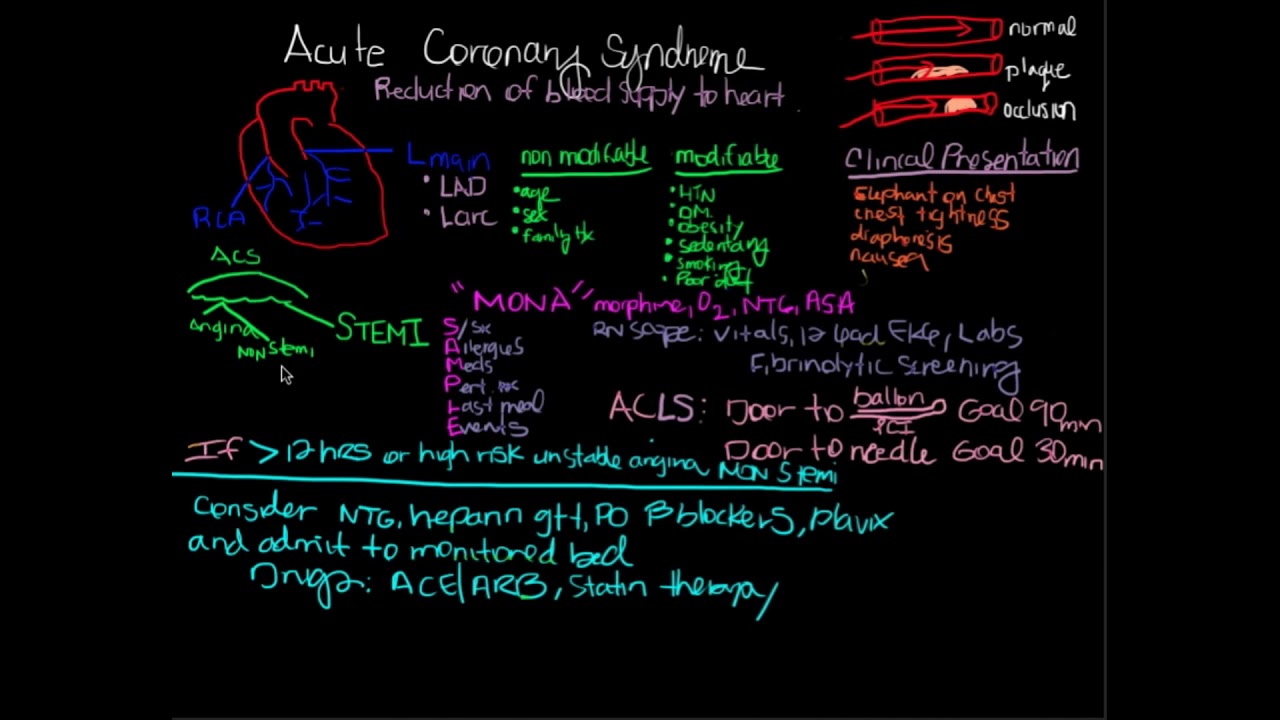 Acute Coronary Syndrome
Reduction of blood supply to heart
normal
plaque
occlusion
L main
• LAD
• Larc
RCA
non modifiable
• age
• sex
• family Hx
modifiable
• HTN
• DM
• obesity
• sedentary
• smoking
• Poor diet
Clinical Presentation
Elephant on chest
chest tightness
diaphoresis
nausea
ACS
Angina
NON Stemi
STEMI
"MONA" morphine, O2, NTG, ASA
S/Sx
Allergies
Meds
Pert. Hx
Last meal
Events
RN scope: Vitals, 12 lead EKG, Labs
Fibrinolytic Screening
ACLS: Door to ballon Goal 90min
PCI
Door to needle Goal 30min
If > 12 hrs or high risk unstable angina NON Stemi
Consider NTG, heparin gtt, PO β blockers, plavix
and admit to monitored bed
Drugs: ACE/ARB, Statin therapy